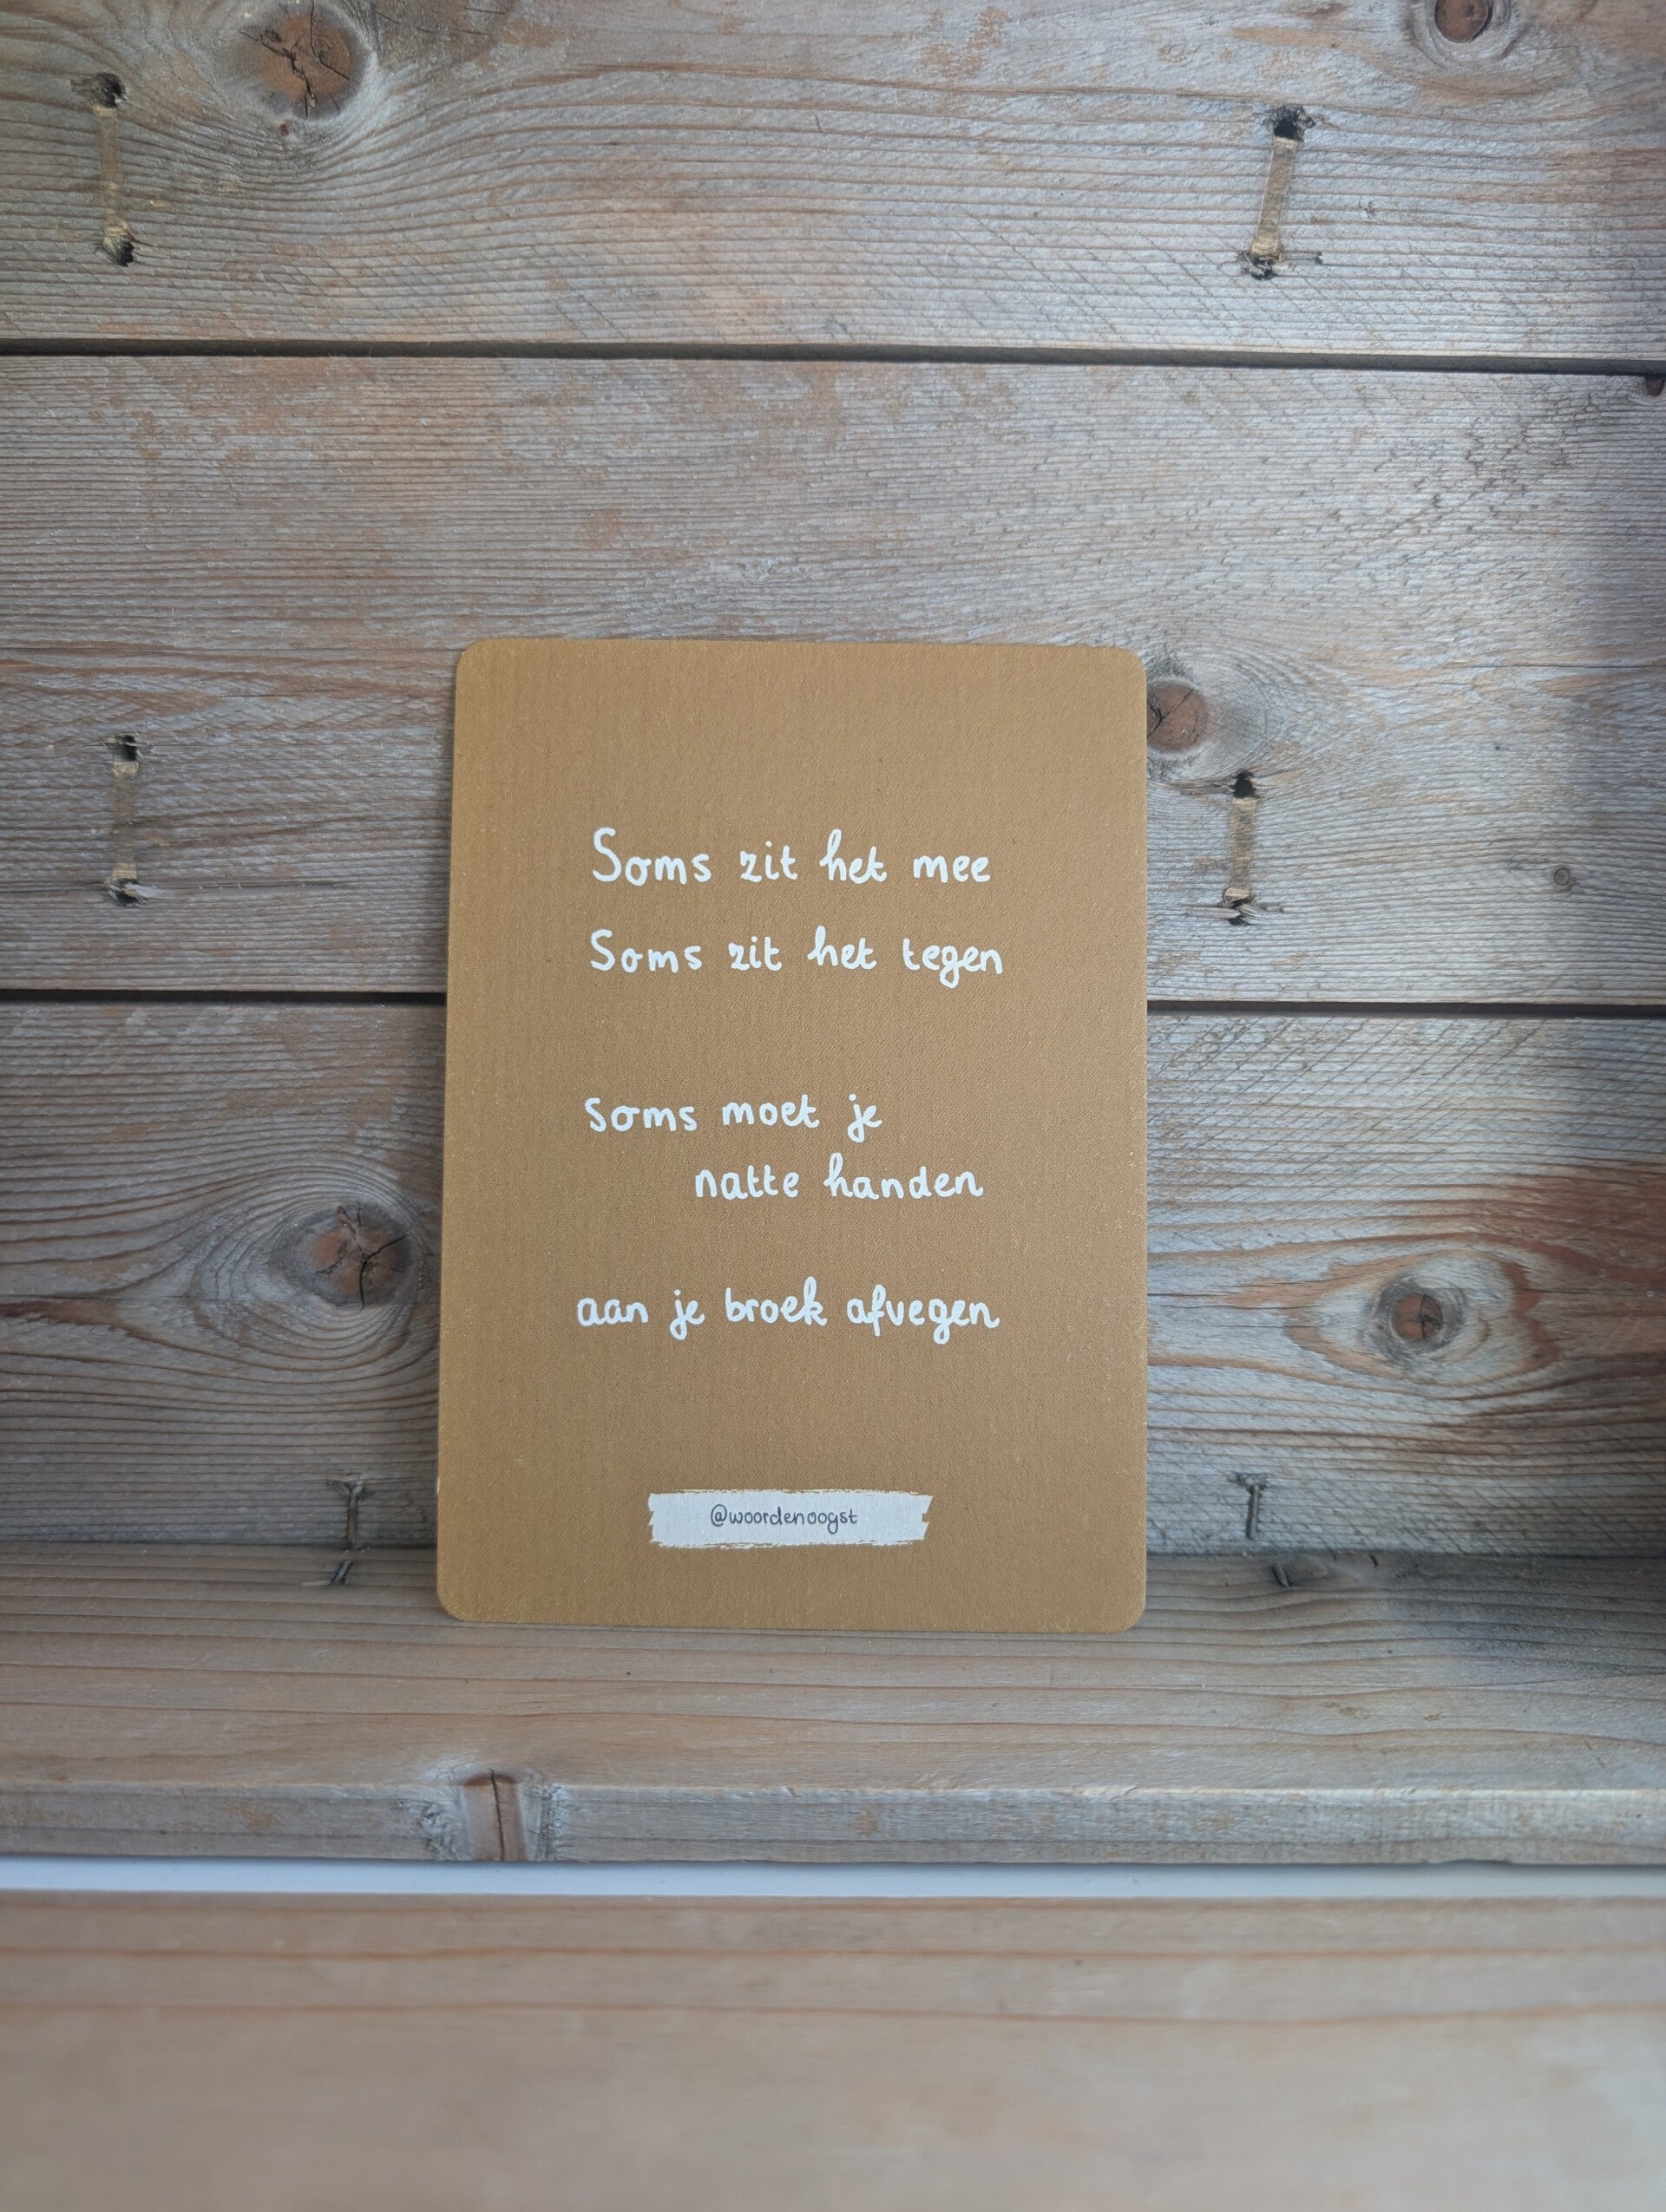 Soms zit het mee
Soms zit het tegen
soms moet je
natte handen
aan je broek afvegen
@woordenoogst